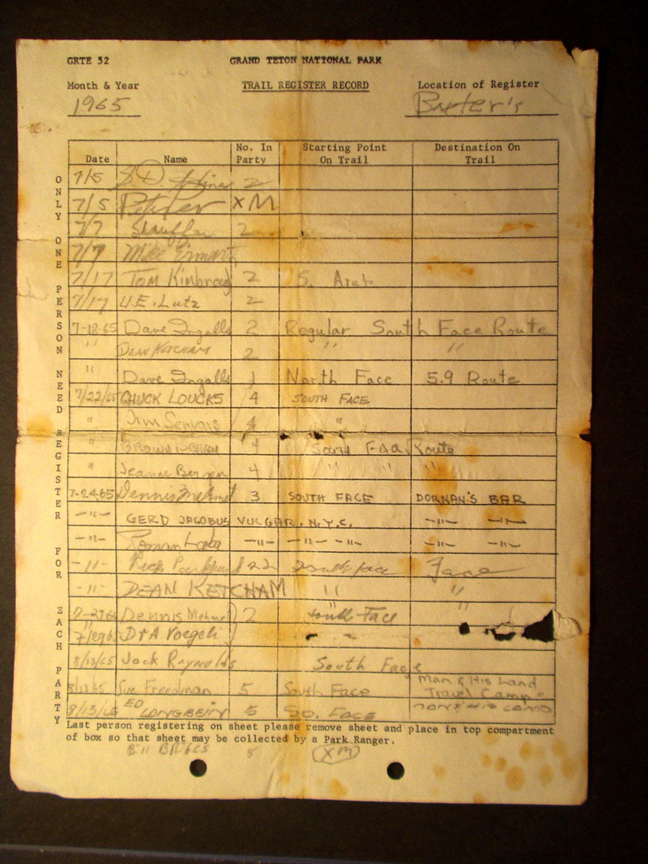 GRTE 52 GRAND TETON NATIONAL PARK
Month & Year TRAIL REGISTER RECORD Location of Register
1965 Baxter's
Date Name No. In Party Starting Point On Trail Destination On Trail
ONLY ONE PERSON NEED REGISTER FOR EACH PARTY
7/5 2
7/5 XM
7/7 2
7/7 Mike
7/17 Tom Kimbrough 2 S.
7/17 U.E. Lutz 2
7-12-65 Dave Ingalls 2 Regular South Face Route
" DEAN KETCHAM 2 " "
" Dave Ingalls 1 North Face 5.9 Route
7/22/65 CHUCK LOUCKS 4 SOUTH FACE
" Jim 4 "
" 4 Route
" Jeanne 4 " " "
7-24-65 Dennis 3 SOUTH FACE DORNAN'S BAR
-"- GERD JACOBUS VULGAR. N.Y.C. -"- -"-
-"- Roman -"- -"- -"- -"- -"-
-"- Rick 22 South face Face
-"- DEAN KETCHAM " "
7-27-65 Dennis 2 South Face
D & A Voegeli
8/13/65 Jack Reynolds South Face
8/13/65 Sue Freedman 5 South Face Man & His Land Travel Camp"
8/13/65 ED LONGBEIN 5 SO. FACE MAN & HIS LAND
Last person registering on sheet please remove sheet and place in top compartment
of box so that sheet may be collected by a Park Ranger.
5 XM